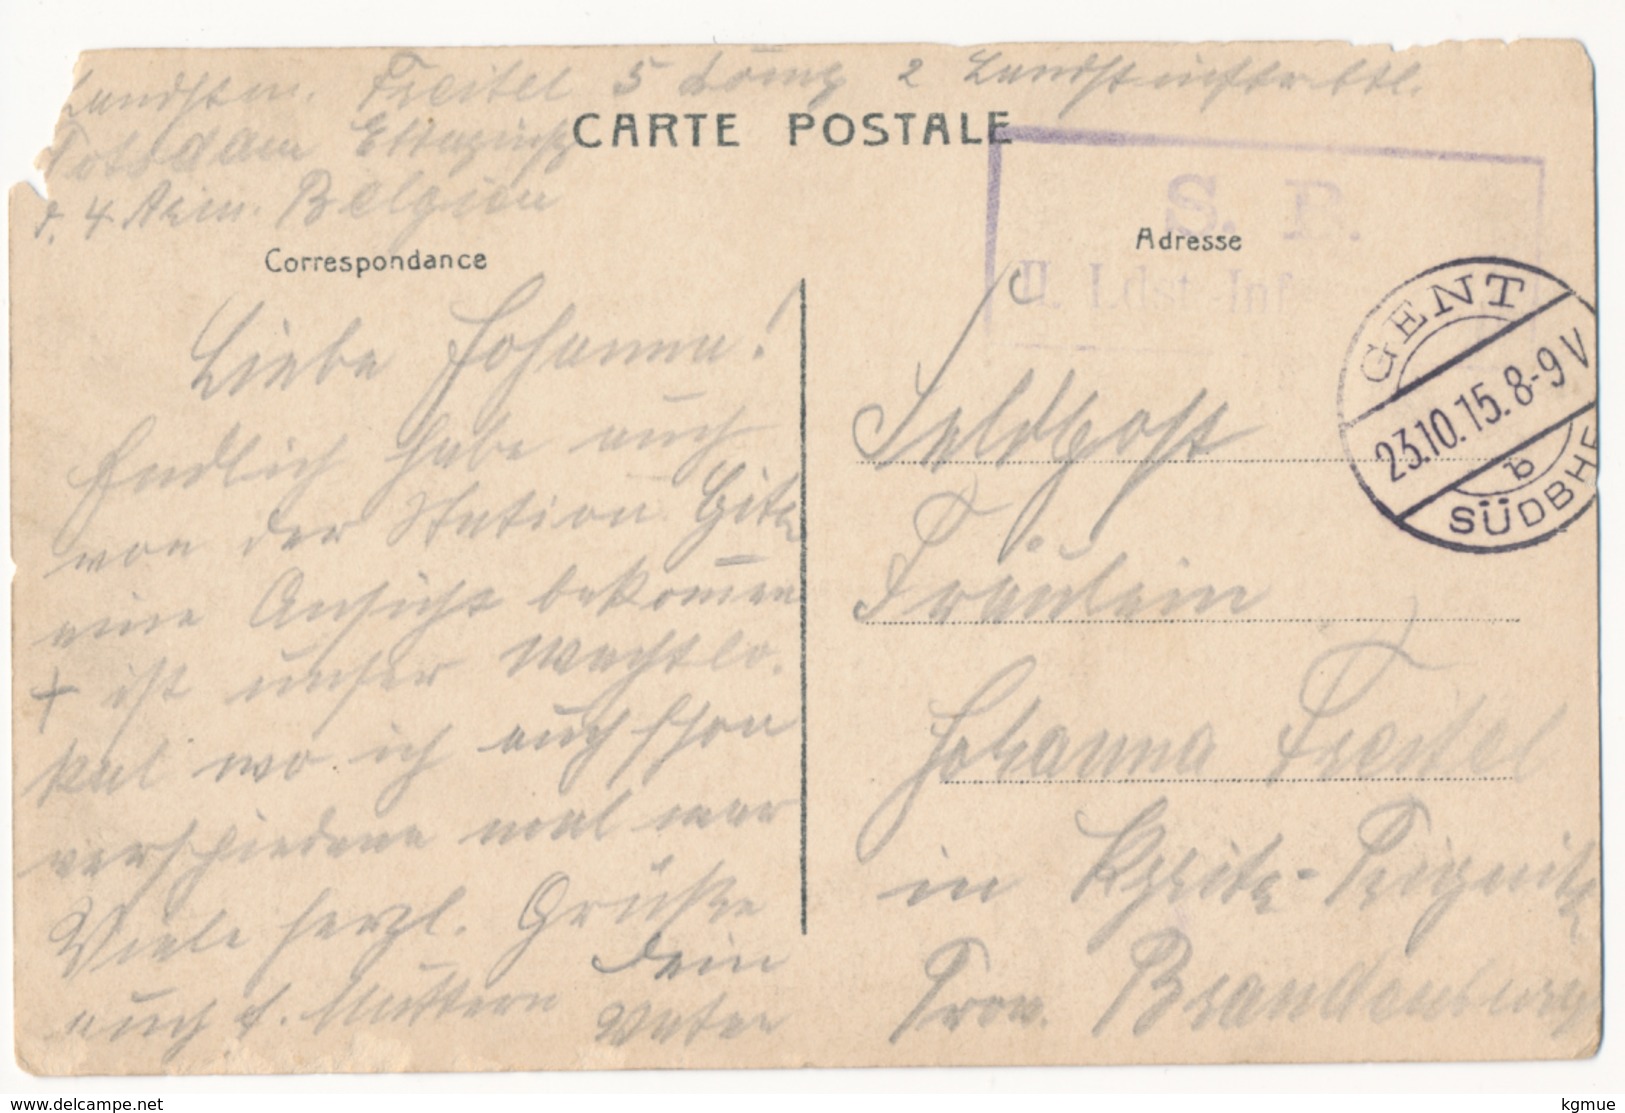 Landstm. Freitel 5 Komp 2 Landst inftr btl.
Potsdam Ettappinsp
d. 4 Arm. Belgien
CARTE POSTALE
S. B.
II. Ldst.-Inf
Correspondance
Adresse
GENT
23.10.15. 8-9 V
b
SÜDBHF
Liebe Johanna!
Endlich habe auch
von der Station Gits
eine Ansicht bekommen
+ ist unser Wachtlo-
kal wo ich auch schon
verschiedene mal war
Viele herzl. Grüße
auch f. Muttern
Dein
Vater
Feldpost
Fräulein
Johanna Freitel
in Kyritz-Prignitz
Prov. Brandenburg
www.delcampe.net
kgmue